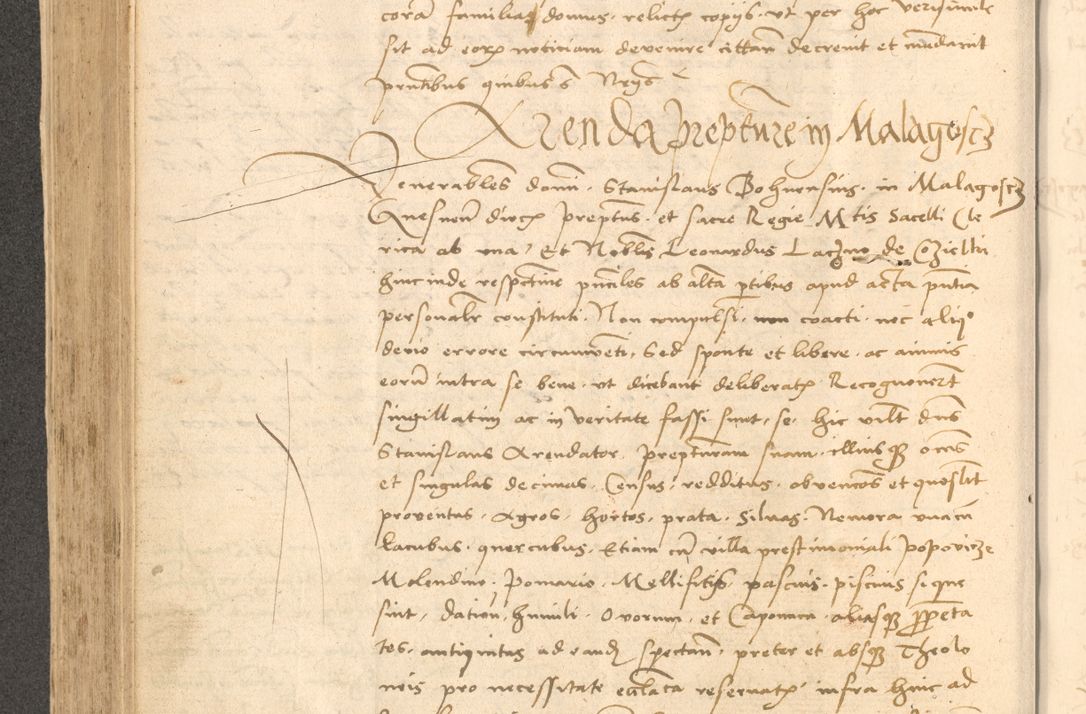 corā familia domus relictꝫ copijs vt per hoc verisimile
sit ad eorꝫ noticiam devenire cittan̄ decrevit et mandavit
pn̄tibus quibus s Nrijs
Arenda prepture in Malagoscz
Venerabiles domi Stanislaus Bohuensius in Malagoscz
Gnesnen̄ diocꝫ prepts et sacre Regie Mtis Sacelli Cle
rica ab vna, Et Noblis Leonardus Laczno de Czieltin
hinc inde respective pn̄ciles ab alta ptibus apud acta pn̄tia
personalr constituti Non compulsi non coacti nec aliqº
devio errore circumventi, Sed sponte et libere ac animis
eorū intra se bene vt dicebant deliberatꝫ Recognovert
singillatim ac in veritate fassi sunt, se hic vilt dns
Stanislaus Arendator prepturam suam illiusqꝫ oēs
et singulas decimas, Census, redditus, obvencōs et quoslit
proventus, Agros, hortos, prata, Silvas, Nemora vnacū
Lacubus quercubus, Etiam cū villa prestimoniali popovicze
Molendino, Pomario, Mellificijs pascuis, piscinis sique
sint, dation̄, humuli Ovorum et Caponum aliasqꝫ ꝑpeta
tes, antiquitus ad eandꝫ spectan̄, preter et absqꝫ Theolo
neis pro necessitate ecclata reservatꝫ infra hinc ad